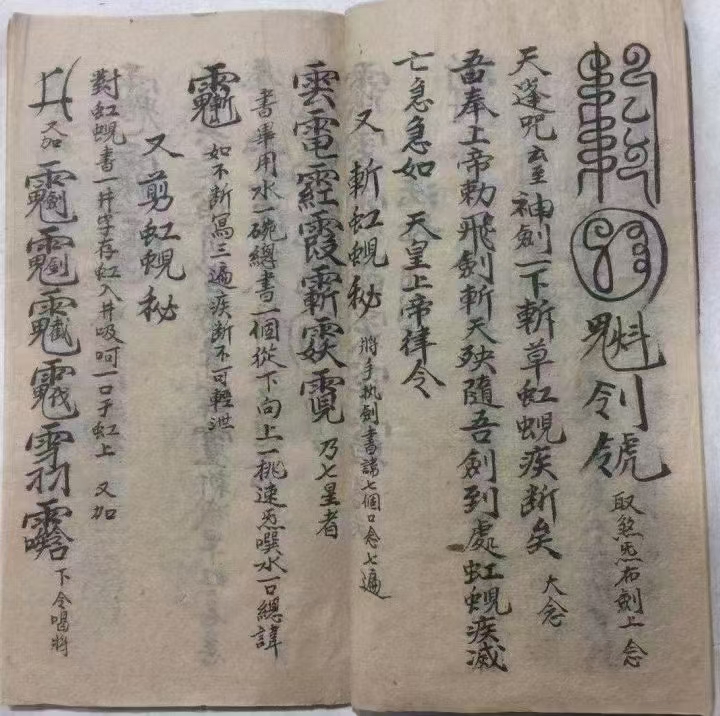 魁 令 取煞炁布劍上 念
天蓬咒 云至 神劍一下斬草虹蜺疾断矣 大念
吾奉上帝勅飛劍斬天殃隨吾劍到處虹蜺疾滅
亡急急如 天皇上帝律令
又斬虹蜺秘 將手執劍書諱七個口念七遍
雲電霞 乃七星者
書畢用水一碗總書一個從下向上一挑速炁噀水一口總諱
如不断寫三遍疾断不可輕泄
又剪虹蜺秘
對虹蜺書一井字存虹入井吸呵一口于虹上 又加
又加 下令喝將